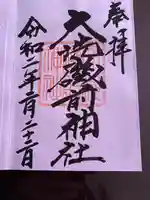 奉拝
大洗磯前神社
令和二年二月二十二日